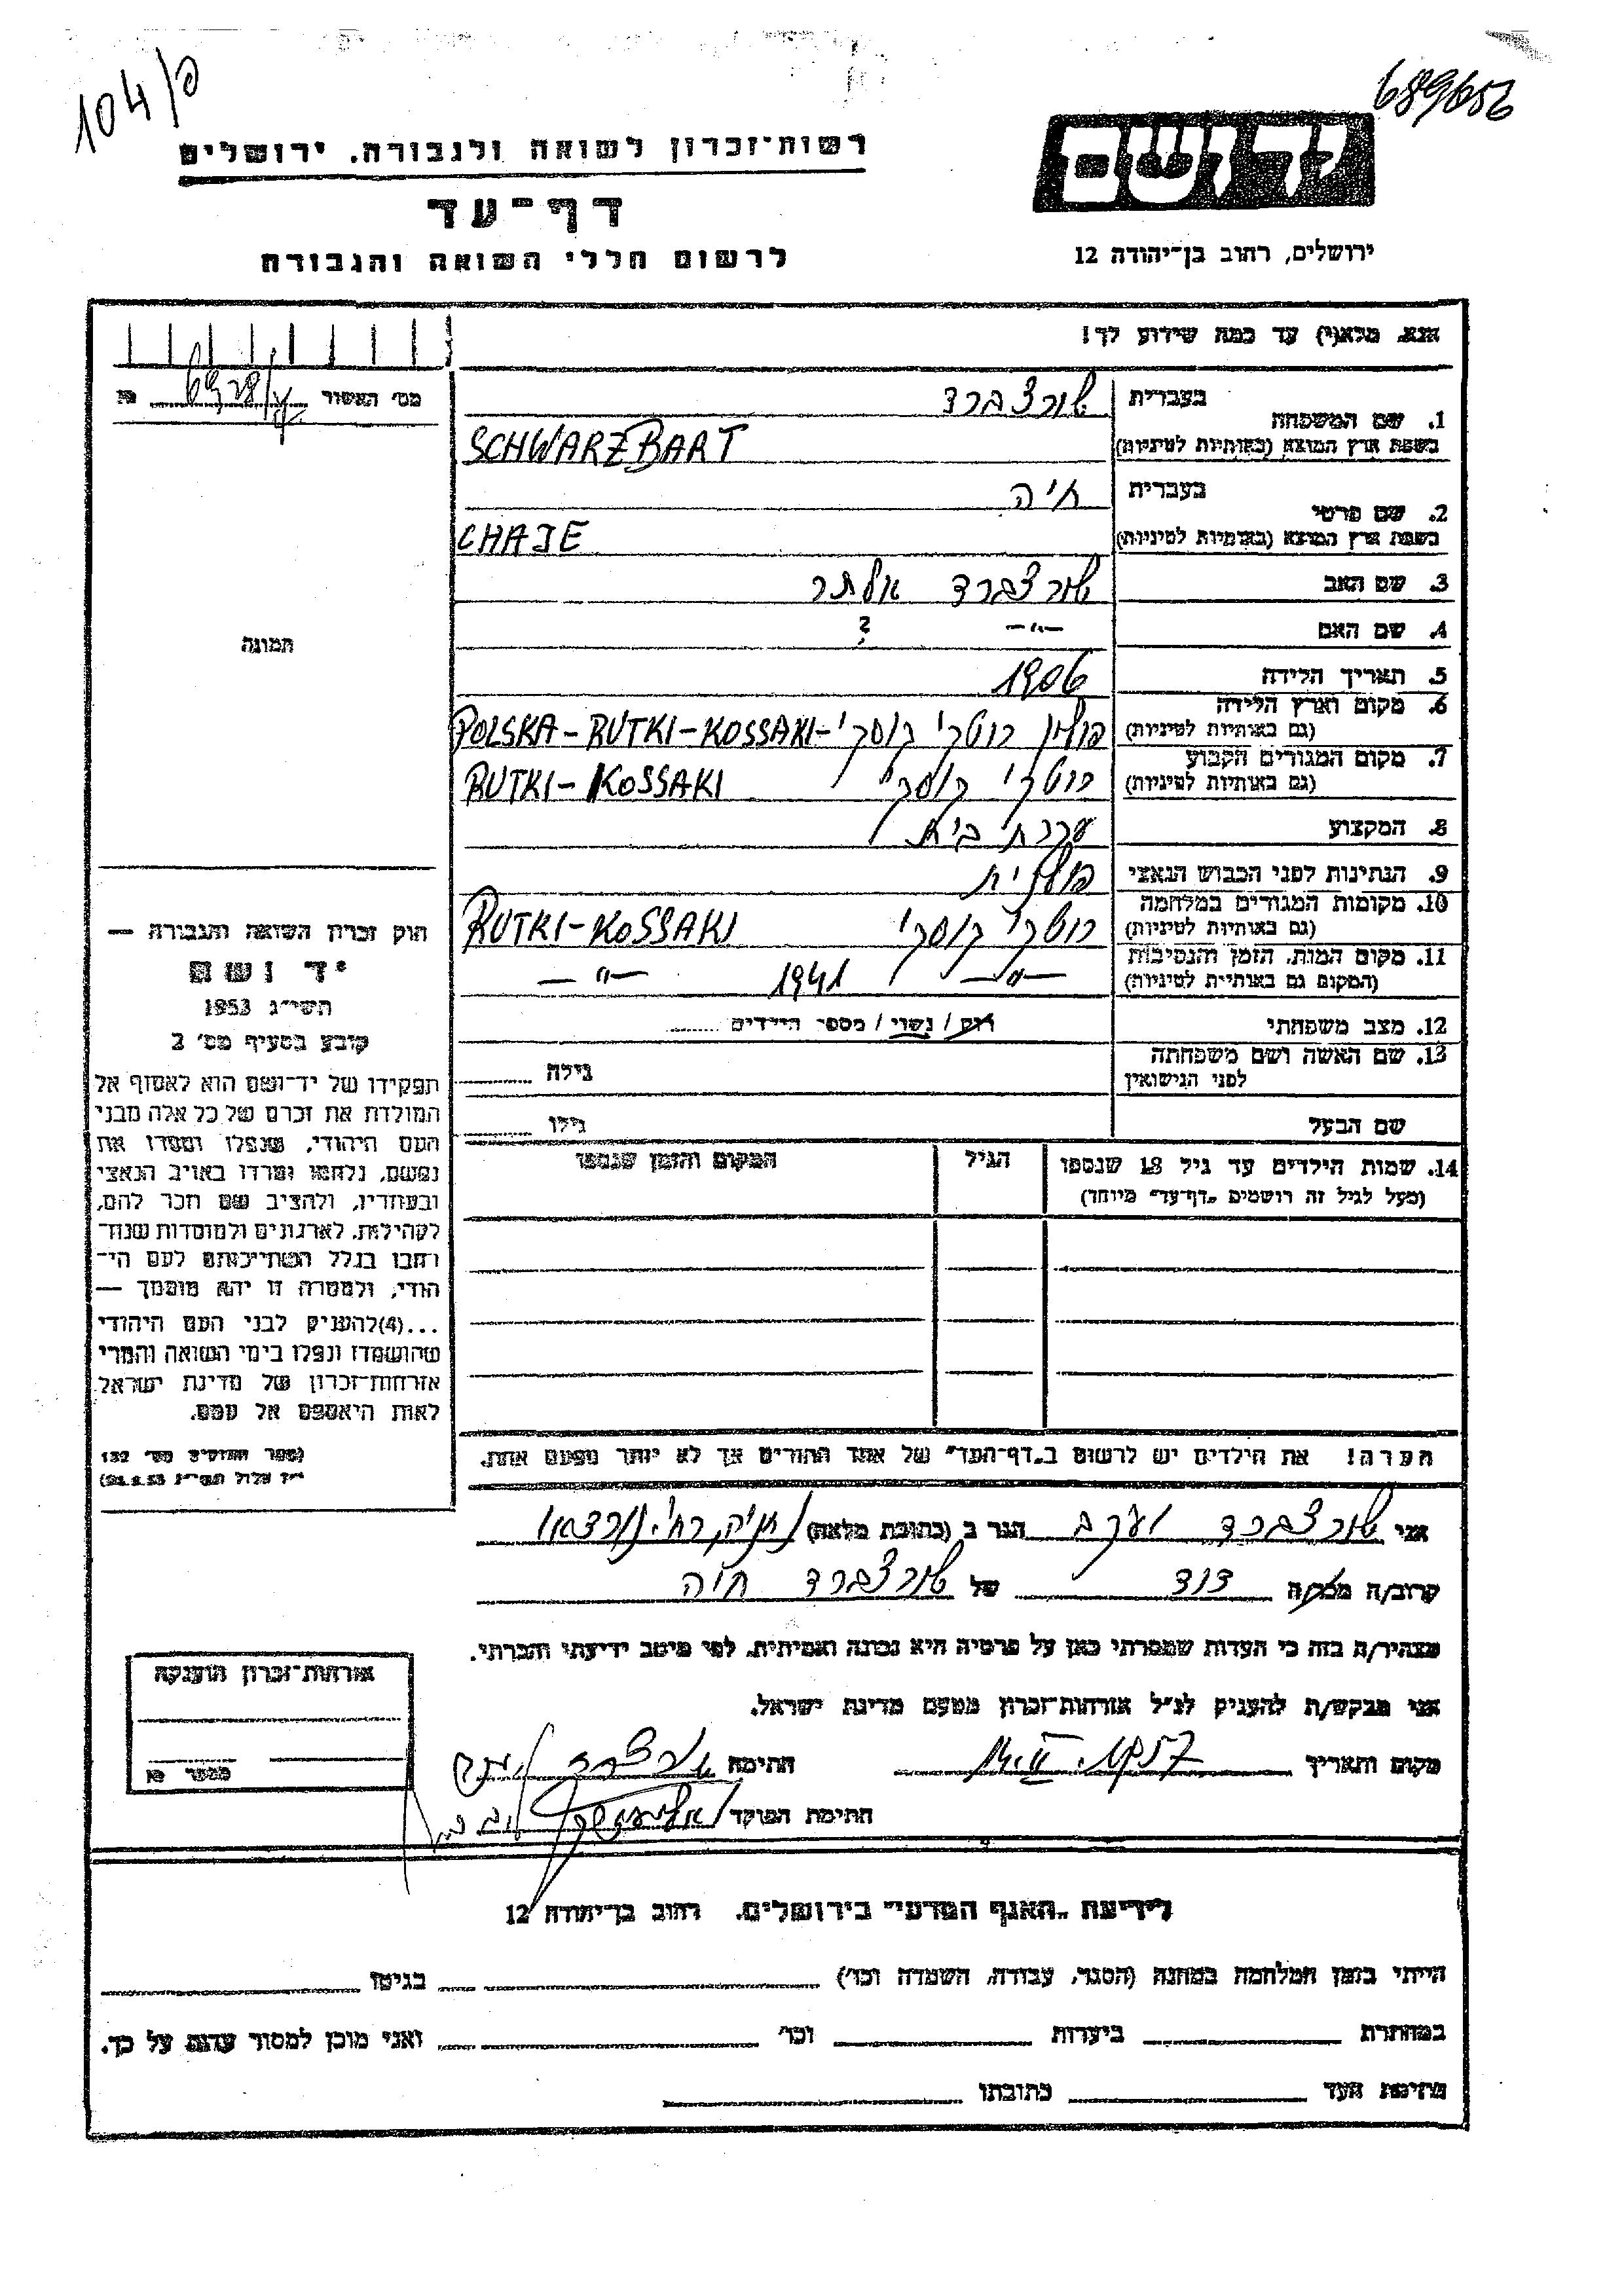 104/פ
689656
רשות־זכרון לשואה ולגבורה. ירושלים
יד ושם
דף־עד
לרשום חללי השואה והגבורה
ירושלים, רחוב בן־יהודה 12
אנא, מלא(י) עד כמה שידוע לך!
מס׳ האשור
1. שם המשפחה
בעברית שורצברד
בשפת ארץ המוצא (באותיות לטיניות) SCHWARZBART
2. שם פרטי
בעברית חיה
בשפת ארץ המוצא (באותיות לטיניות) CHAJE
3. שם האב שורצברד אלתר
4. שם האם —״— ?
5. תאריך הלידה 1906
6. מקום וארץ הלידה
(גם באותיות לטיניות) פולין רוטקי קוסקי - POLSKA - RUTKI - KOSSAKI
7. מקום המגורים הקבוע
(גם באותיות לטיניות) רוטקי קוסקי RUTKI - KOSSAKI
8. המקצוע עקרת בית
9. הנתינות לפני הכבוש הנאצי פולנית
10. מקומות המגורים במלחמה
(גם באותיות לטיניות) רוטקי קוסקי RUTKI - KOSSAKI
11. מקום המות, הזמן והנסיבות
(המקום גם באותיות לטיניות) —״— 1941 —״—
12. מצב משפחתי רווק / נשוי / מספר הילדים
13. שם האשה ושם משפחתה
לפני הנישואין גילה
שם הבעל גילו
14. שמות הילדים עד גיל 18 שנספו
(מעל לגיל זה רושמים „דף־עד״ מיוחד)
הגיל
המקום והזמן שנספו
הערה! את הילדים יש לרשום ב„דף־העד״ של אחד ההורים אך לא יותר מפעם אחת.
תמונה
חוק זכרון השואה והגבורה —
יד ושם
תשי״ג 1953
קובע בסעיף מס׳ 2
תפקידו של יד־ושם הוא לאסוף אל
המולדת את זכרם של כל אלה מבני
העם היהודי, שנפלו ומסרו את
נפשם, נלחמו ומרדו באויב הנאצי
ובעוזריו, ולהציב שם וזכר להם,
לקהילות, לארגונים ולמוסדות שנח־
רבו בגלל השתייכותם לעם הי־
הודי, ולמטרה זו יהא מוסמך —
...(4) להעניק לבני העם היהודי
שהושמדו ונפלו בימי השואה והמרי
אזרחות־זכרון של מדינת ישראל
לאות היאספם אל עמם.
(ספר החוקים מס׳ 132
י״ז אלול תשי״ג 28.8.53)
אני שורצברד יעקב הגר ב (כתובת מלאה)
קרוב/ה מכר/ה דוד של שורצברד חיה
מצהיר/ה בזה כי העדות שמסרתי כאן על פרטיה היא נכונה ואמיתית, לפי מיטב ידיעתי והכרתי.
אני מבקש/ת להעניק לנ״ל אזרחות־זכרון מטעם מדינת ישראל.
מקום ותאריך חתימה שורצברד יעקב
חתימת הפוקד
אזרחות־זכרון הוענקה
מספר
לידיעת „האגף המדעי״ בירושלים, רחוב בן־יהודה 12
הייתי בזמן המלחמה במחנה (הסגר, עבודה, השמדה וכו׳) בגיטו
במחתרת ביערות וכו׳ ואני מוכן למסור עדות על כך.
חתימת העד כתובתו